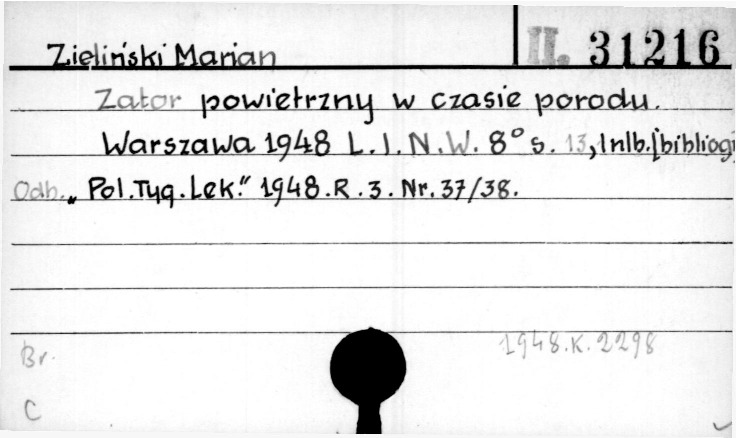 Zieliński Marian II. 31216
Zator powietrzny w czasie porodu.
Warszawa 1948 L.I.N.W. 8° s. 13, 1 nlb. [bibliogr
Odb. „Pol.Tyg.Lek." 1948.R.3.Nr.37/38.
1948.K.2298
Br.
C